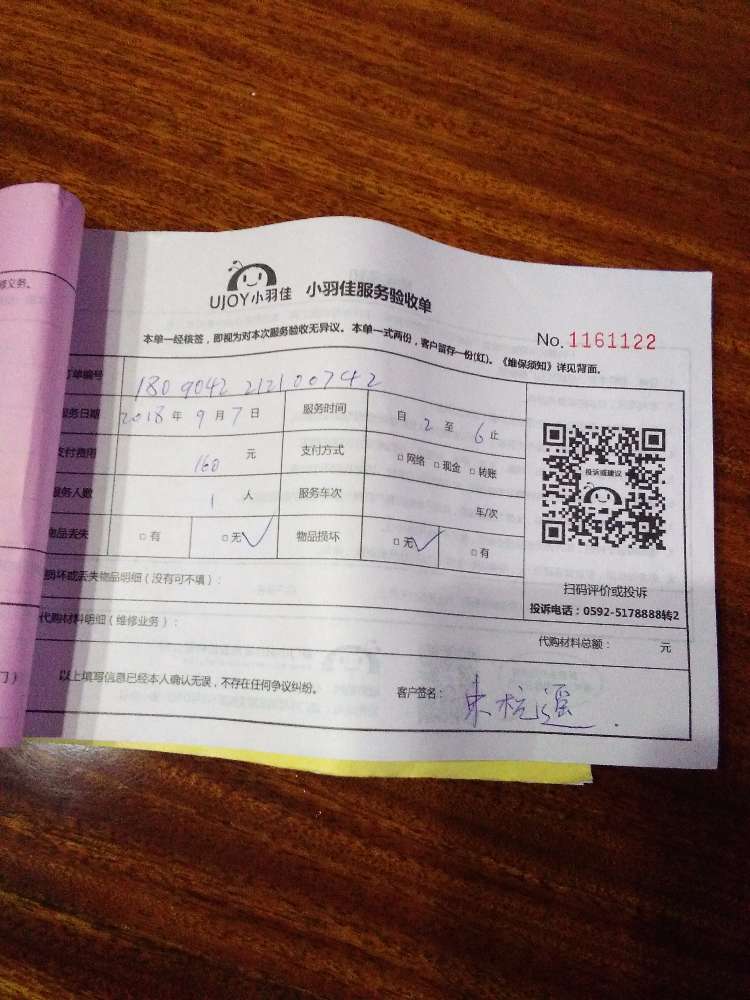 修义务。
UJOY小羽佳 小羽佳服务验收单
本单一经核签，即视为对本次服务验收无异议。本单一式两份，客户留存一份(红)。《维保须知》详见背面。
No. 1161122
订单编号 1809042212100742
服务日期 2018 年 9 月 7 日 服务时间 自 2 至 6 止
支付费用 160 元 支付方式 □ 网络 □ 现金 □ 转账
服务人数 1 人 服务车次 车/次
物品丢失 □ 有 □ 无 ✓ 物品损坏 □ 无 ✓ □ 有
投诉或建议
扫码评价或投诉
投诉电话：0592-5178888转2
损坏或丢失物品明细（没有可不填）：
代购材料明细（维修业务）： 代购材料总额： 元
门）
以上填写信息已经本人确认无误，不存在任何争议纠纷。 客户签名：